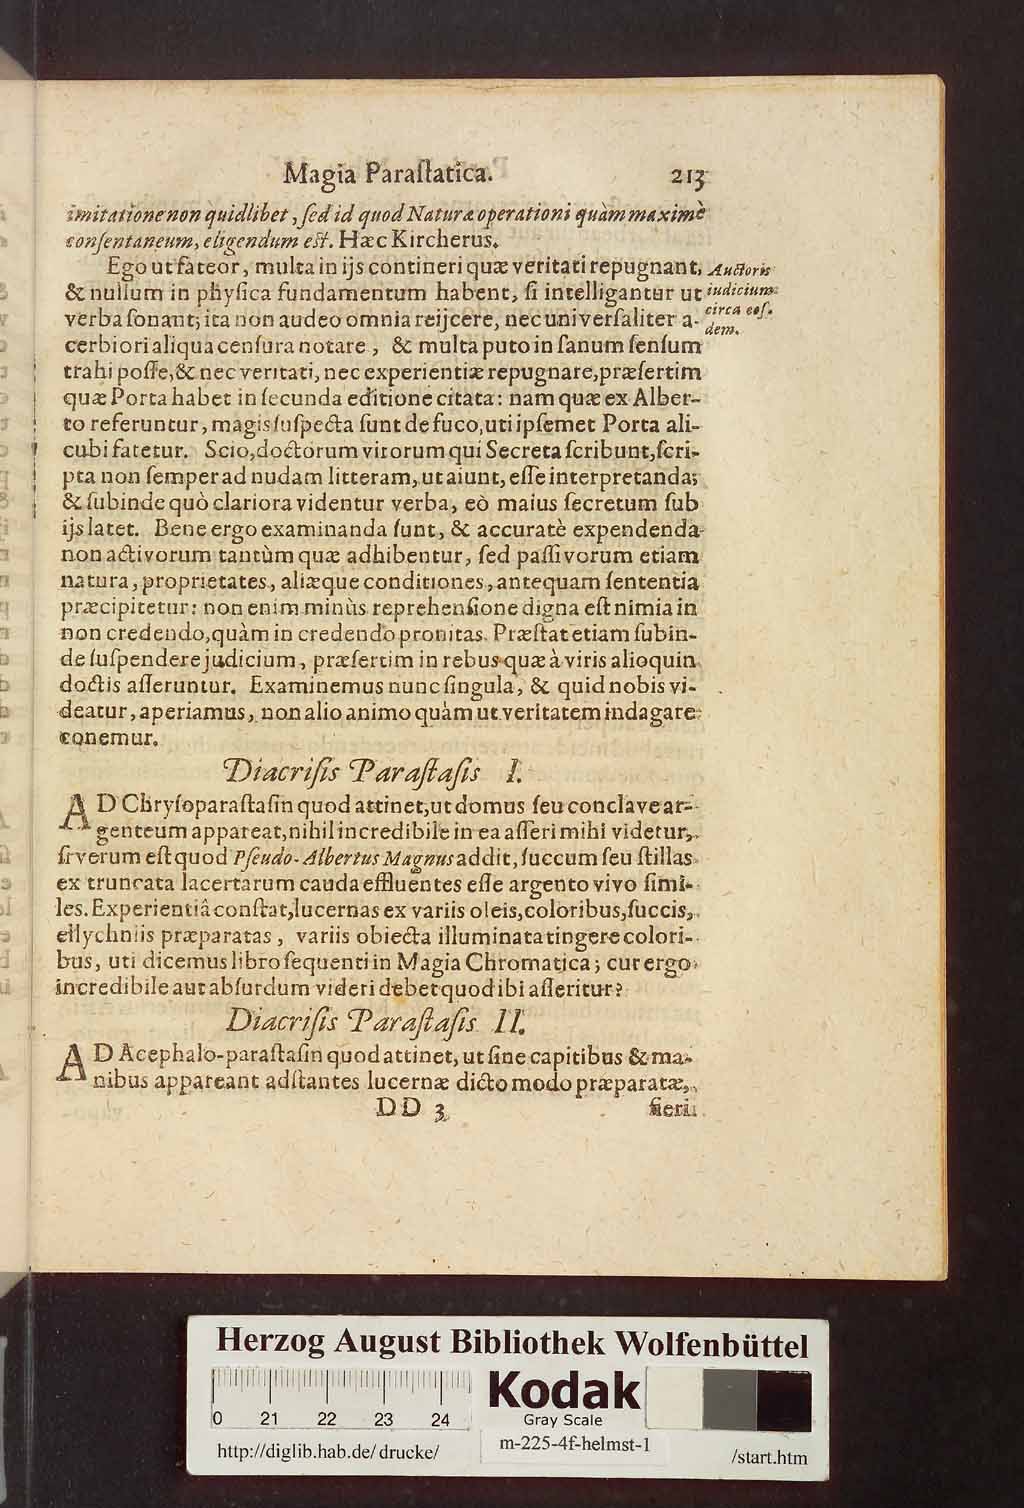 Magia Paraſtatica. 213
imitatione non quidlibet, ſed id quod Naturæ operationi quàm maximè
conſentaneum, eligendum eſt. Hæc Kircherus.
Ego ut fateor, multa in ijs contineri quæ veritati repugnant,
& nullum in phyſica fundamentum habent, ſi intelligantur ut
verba ſonant; ita non audeo omnia reijcere, nec univerſaliter a-
cerbiori aliqua cenſura notare, & multa puto in ſanum ſenſum
trahi poſſe, & nec veritati, nec experientiæ repugnare, præſertim
quæ Porta habet in ſecunda editione citata: nam quæ ex Alber-
to referuntur, magis ſuſpecta ſunt de fuco, uti ipſemet Porta ali-
cubi fatetur. Scio, doctorum virorum qui Secreta ſcribunt, ſcri-
pta non ſemper ad nudam litteram, ut aiunt, eſſe interpretanda;
& ſubinde quò clariora videntur verba, eò maius ſecretum ſub
ijs latet. Bene ergo examinanda ſunt, & accuratè expendenda
non activorum tantùm quæ adhibentur, ſed paſſivorum etiam
natura, proprietates, aliæque conditiones, antequam ſententia
præcipitetur: non enim minùs reprehenſione digna eſt nimia in
non credendo, quàm in credendo pronitas. Præſtat etiam ſubin-
de ſuſpendere judicium, præſertim in rebus quæ à viris alioquin
doctis aſſeruntur. Examinemus nunc ſingula, & quid nobis vi-
deatur, aperiamus, non alio animo quàm ut veritatem indagare
conemur.
Auctoris
iudicium
circa eoſ-
dem.
Diacriſis Paraſtaſis I.
AD Chryſoparaſtaſin quod attinet, ut domus ſeu conclave ar-
genteum appareat, nihil incredibile in ea aſſeri mihi videtur,
ſi verum eſt quod Pſeudo-Albertus Magnus addit, ſuccum ſeu ſtillas
ex truncata lacertarum cauda effluentes eſſe argento vivo ſimi-
les. Experientiâ conſtat, lucernas ex variis oleis, coloribus, ſuccis,
ellychniis præparatas, variis obiecta illuminata tingere colori-
bus, uti dicemus libro ſequenti in Magia Chromatica; cur ergo
incredibile aut abſurdum videri debet quod ibi aſſeritur?
Diacriſis Paraſtaſis II.
AD Acephalo-paraſtaſin quod attinet, ut ſine capitibus & ma-
nibus appareant adſtantes lucernæ dicto modo præparatæ,
DD 3 fieri
Herzog August Bibliothek Wolfenbüttel
0 21 22 23 24
Kodak
Gray Scale
http://diglib.hab.de/drucke/ m-225-4f-helmst-1 /start.htm